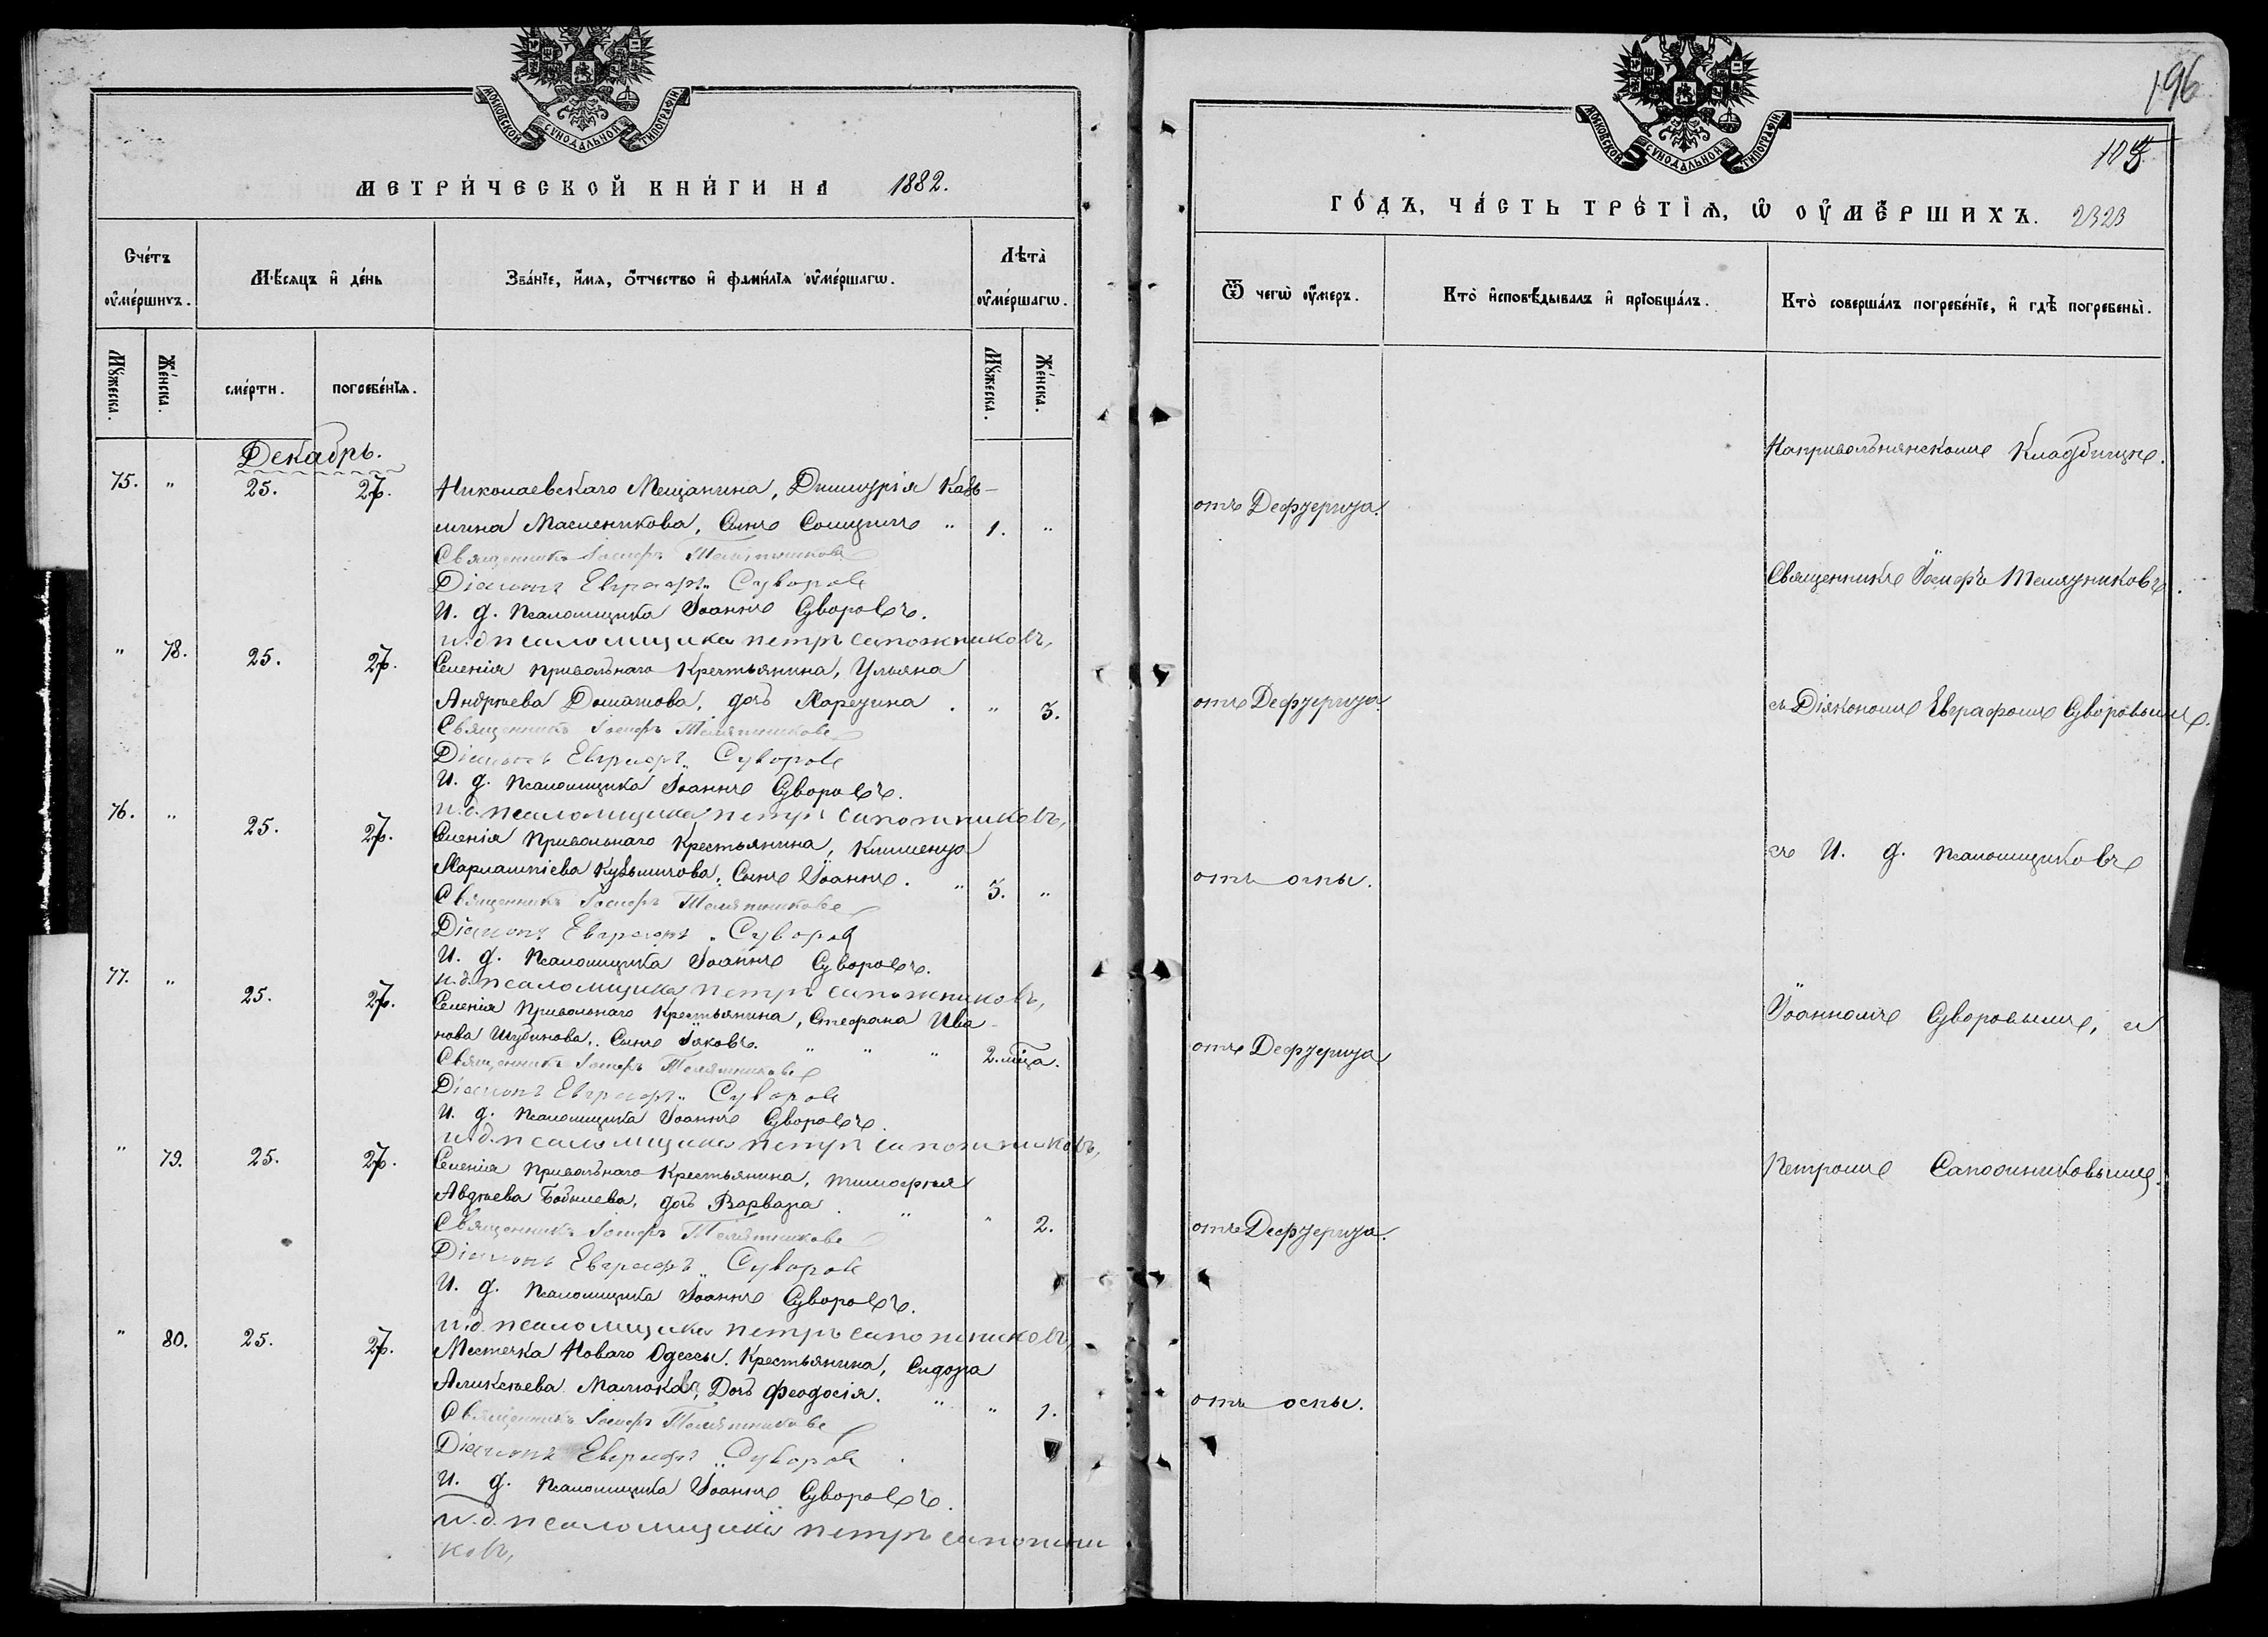 МОСКОВСКОЙ СУНОДАЛЬНОЙ ТИПОГРАФІИ
МЕТРИ́ЧЕСКОЙ КНИ́ГИ НА 1882.
Сче́тъ ᲂу҆ме́ршихъ.
Мѣ́сяцъ и҆ де́нь
Зва́нїе, и҆́мѧ, ѻ҆́тчество и҆ фами́лїѧ ᲂу҆ме́ршагѡ.
Лѣта̀ ᲂу҆ме́ршагѡ.
Мꙋ́жеска.
Же́нска.
сме́рти.
погребе́нїѧ.
Мꙋ́жеска.
Же́нска.
Декабрь.
75. " 25. 27. Николаевскаго Мещанина, Димитрія Казь-
мина Масленикова, Сынъ " 1. "
Священникъ Іосифъ Телятниковъ
Діаконъ Евграфъ Суворовъ
И. д. Псаломщика Іоаннъ Суворовъ.
и.д. псаломщика петръ сапожниковъ,
" 78. 25. 27. Селенія Привольнаго Крестьянина, Ульяна
Андреева дочь " 3.
Священникъ Іосифъ Телятниковъ
Діаконъ Евграфъ Суворовъ
И. д. Псаломщика Іоаннъ Суворовъ.
и.д. псаломщика петръ сапожниковъ,
76. " 25. 27. Селенія Привольнаго Крестьянина, Климента
Харлампіева Кузьмичова, Сынъ Іоаннъ. " 3. "
Священникъ Іосифъ Телятниковъ
Діаконъ Евграфъ Суворовъ
И. д. Псаломщика Іоаннъ Суворовъ.
и.д. псаломщика петръ сапожниковъ,
77. " 25. 27. Селенія Привольнаго Крестьянина, Стефана Ива-
нова Шубинова, Сынъ Іаковъ. " " " 2. мѣца.
Священникъ Іосифъ Телятниковъ
Діаконъ Евграфъ Суворовъ
И. д. Псаломщика Іоаннъ Суворовъ.
и.д. псаломщика петръ сапожниковъ,
" 79. 25. 27. Селенія Привольнаго Крестьянина, Тимофея
Авдѣева дочь Варвара. " " 2.
Священникъ Іосифъ Телятниковъ
Діаконъ Евграфъ Суворовъ
И. д. Псаломщика Іоаннъ Суворовъ.
и.д. псаломщика петръ сапожниковъ,
" 80. 25. 27. Местечка Новаго Одессы. Крестьянина, Сидора
Аликсѣева Малюкова, Дочь Феодосія. " " 1.
Священникъ Іосифъ Телятниковъ
Діаконъ Евграфъ Суворовъ
И. д. Псаломщика Іоаннъ Суворовъ.
и.д. псаломщика петръ сапожни
ковъ,
196
МОСКОВСКОЙ СУНОДАЛЬНОЙ ТИПОГРАФІИ
ГО́ДЪ, ЧА́СТЬ ТРЕ́ТЇѦ, Ѡ҆ ОУ҆МЕ́РШИХЪ. 2323
Ѿ чегѡ̀ ᲂу҆́меръ.
Кто̀ и҆сповѣ́дывалъ и҆ прїобща́лъ.
Кто̀ соверша́лъ погребе́нїе, и҆ гдѣ̀ погребены̀.
На привольнянскомъ Кладбищѣ.
отъ Дефтерита.
Священникъ Іосифъ Телятниковъ.
отъ Дефтерита.
съ Діякономъ Евграфомъ Суворовымъ.
съ И. д. псаломщиковъ
отъ оспы.
Іоанномъ Суворовымъ, и
отъ Дефтерита
Петромъ Сапожниковымъ.
отъ Дефтерита.
отъ оспы.